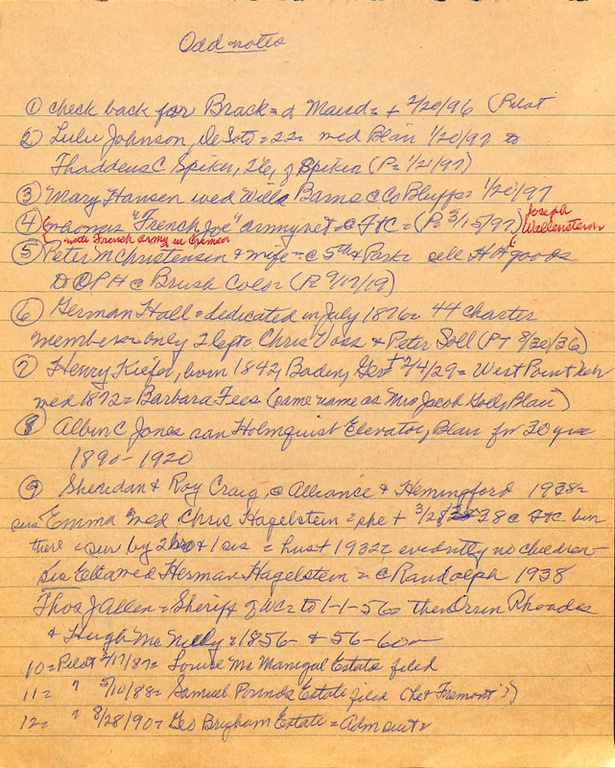 Odd notes
① check back for Brack = d Maud = + 2/20/96 (Pilot
② Lulu Johnson, DeSoto = 22 = wed Blair 1/20/97 to
Thaddeus C Spiker, 26, of Spiker (P = 1/21/97)
③ Mary Hansen wed Willa Barns @ Co Bluffs = 1/20/97
④ "French Joe" army vet = @ FtC = (P = 3/15/97) Joseph
Wallenstein
= with French army in Crimea
⑤ Peter M Christensen & wife = @ 5th & Park = sell HH goods
@ Brush Colo = (P. 9/17/19)
⑥ German Hall = dedicated in July 1876 = 44 charter
members = only 2 left = Chris Voss & Peter Soll (PT 8/20/36)
⑦ Henry Kiefer, born 1842, Baden, Ger + 2/4/29 = West Point Neb
wed 1872 = Barbara Fees (same name as Mrs Jacob Goll, Blair)
⑧ Albin C Jones ran Holmquist Elevator, Blair for 30 yrs
1890 - 1920
⑨ Sheridan & Roy Craig @ Alliance & Hemingford 1938 =
sis Emma wed Chris Hagelstein = she + 3/28/38 @ FtC bur
there = sur by 2 bro & 1 sis = husb 1932 = evidently no children -
Sis Etta wed Herman Hagelstein = @ Randolph 1938
Thos J Allen = Sheriff of WC = to 1-1-56 = then Orrin Rhoades
& Hugh McNeely = 1856 - & 56-60 =
10 = Pilot 2/17/87 = Louise McManigal Estate filed
11 = " 5/10/88 = Samuel Pounds Estate filed (he + Fremont ?)
12 = " 8/28/90 = Geo Brigham Estate =